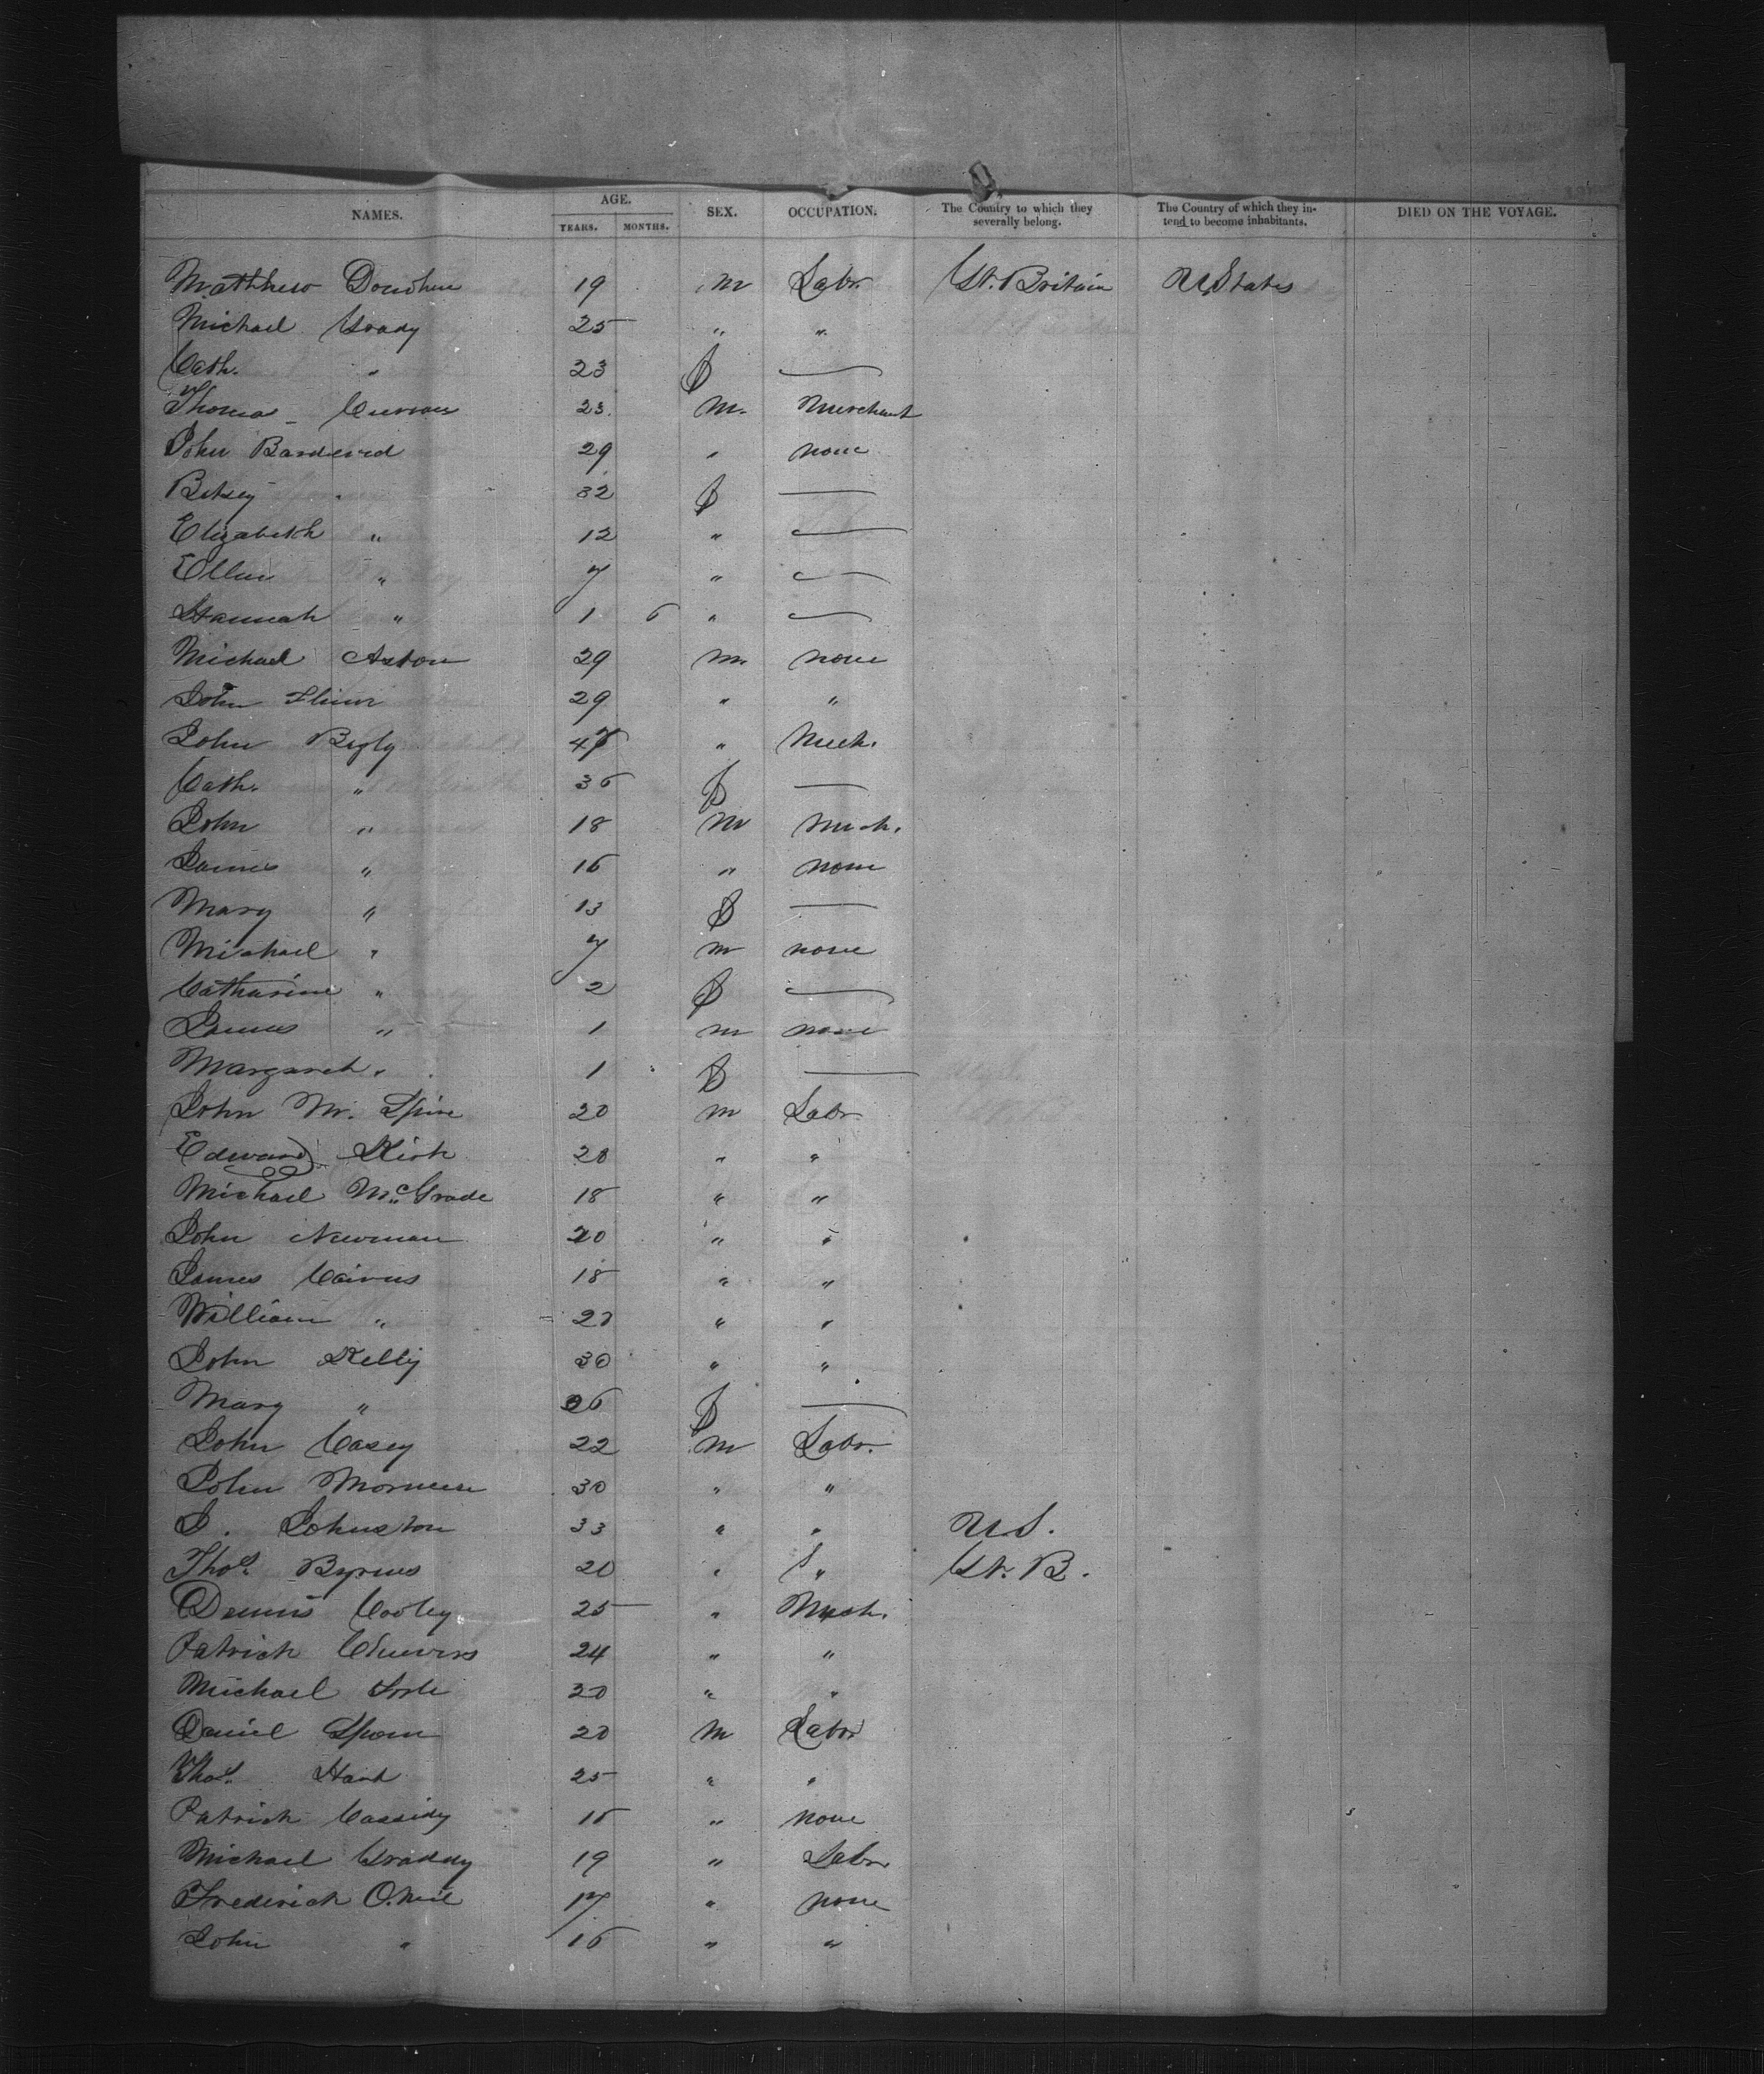 NAMES. AGE. YEARS. MONTHS. SEX. OCCUPATION. The Country to which they severally belong. The Country of which they intend to become inhabitants. DIED ON THE VOYAGE.
Matthew Donohue 19 m Labr. Gt. Britain U States
Michael Grady 25 " "
Cath. " 23 f —
Thomas Curran 23 m. Merchant
John 29 " none
Betsey " 32 f —
Elizabeth " 12 " —
Ellen " 7 " —
Hannah " 1 6 " —
Michael Aston 29 m. none
John 29 " "
John Begly 47 " Mech.
Cath. " 36 f —
John " 18 m Mech.
James " 16 " none
Mary " 13 f —
Michael " 7 m none
Catharine " 2 f —
James " 1 m none
Margaret " 1 f —
John 20 m Labr
Edward Kirk 20 " "
Michael McGrade 18 " "
John Newman 20 " "
James Cairns 18 " "
William " 20 " "
John Kelly 30 " "
Mary " 26 f —
John Casey 22 m Labr.
John 30 " "
J. Johnston 33 " " U.S.
Thos. Byrnes 20 " " Gt. B.
Dennis Cooley 25 " Mech.
Patrick 24 " "
Michael 20 " "
Daniel 20 m Labr
Thos. Hand 25 " "
Patrick Cassidy 16 " none
Michael Graddy 19 " Labr
Frederick O.Neil 17 " none
John " 16 " "